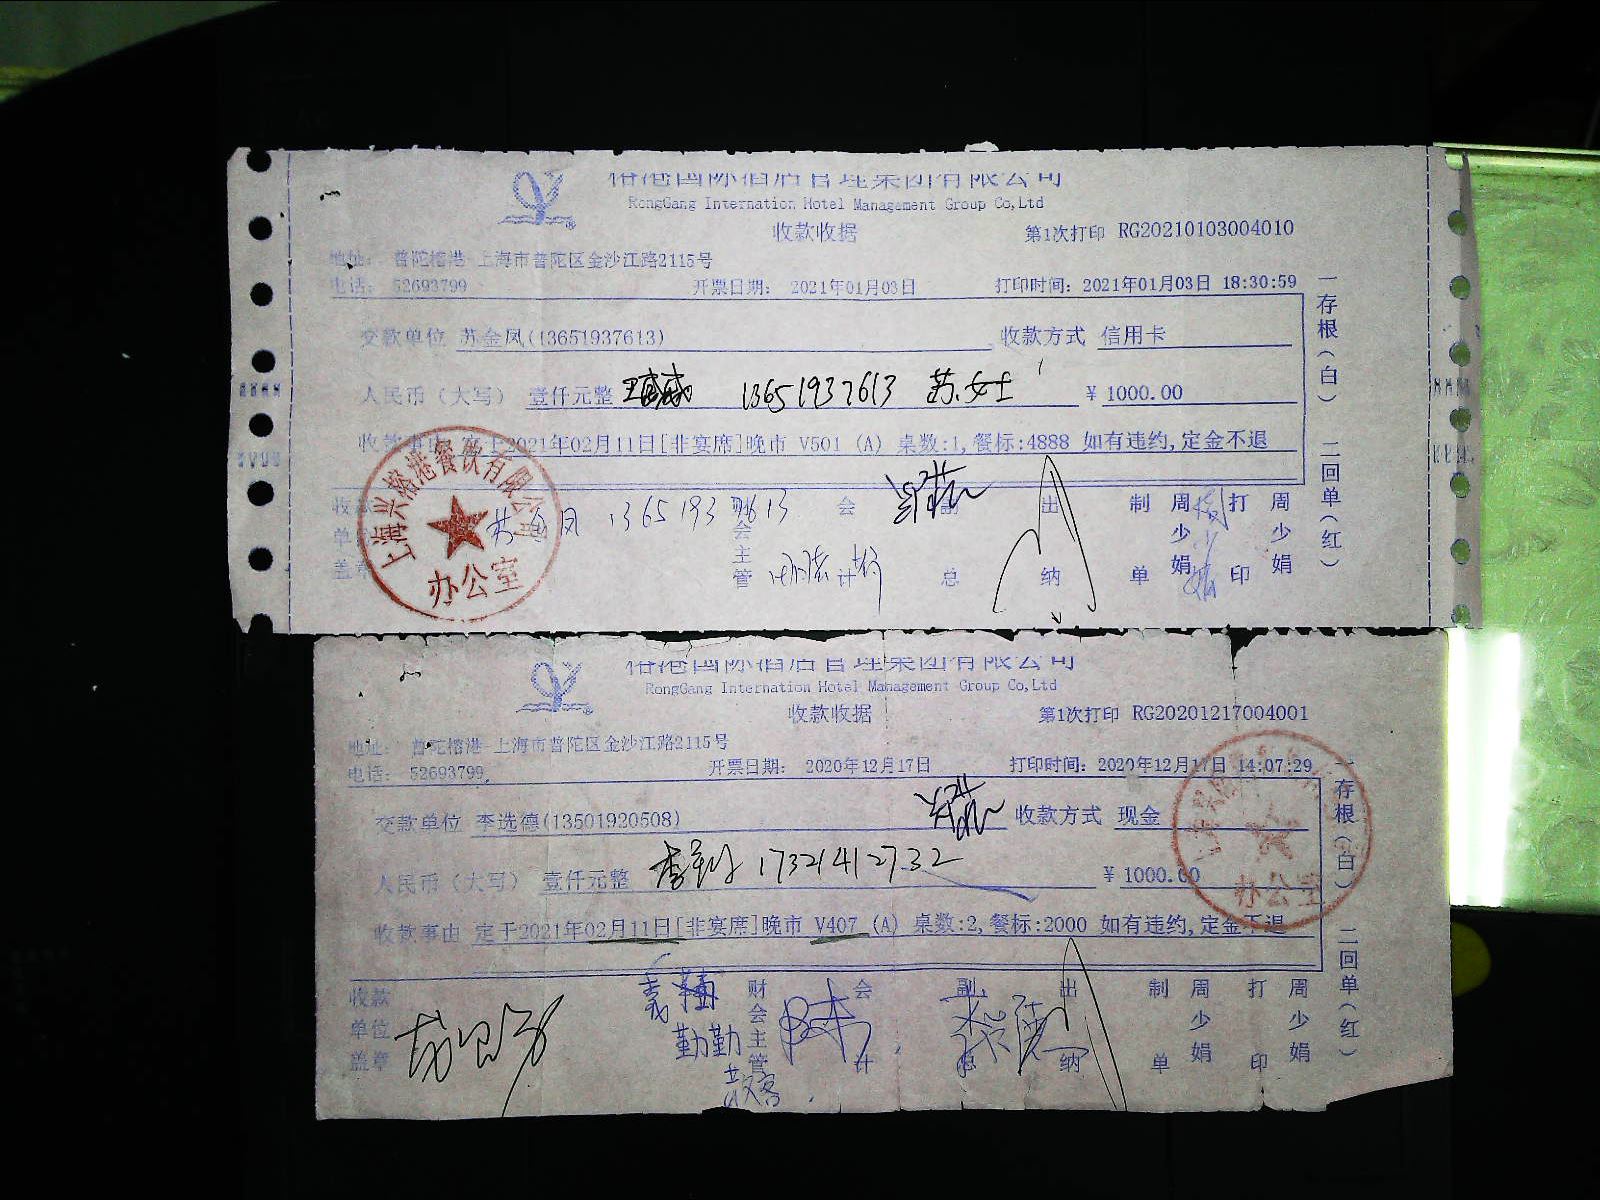 榕港国际酒店管理集团有限公司
RongGang Internation Hotel Management Group Co,Ltd
收款收据 第1次打印 RG20210103004010
地址: 普陀榕港-上海市普陀区金沙江路2115号
电话: 52693799 开票日期: 2021年01月03日 打印时间: 2021年01月03日 18:30:59
交款单位 苏金凤(13651937613) 收款方式 信用卡
人民币(大写) 壹仟元整 13651937613 苏女士 ¥ 1000.00
收款事由 定于2021年02月11日[非宴席]晚市 V501 (A) 桌数:1,餐标:4888 如有违约,定金不退
收款单位盖章 财会主管 会计 副总 出纳 制单 周少娟 打印 周少娟
一存根(白) 二回单(红)
上海兴榕港餐饮有限公司
办公室
榕港国际酒店管理集团有限公司
RongGang Internation Hotel Management Group Co,Ltd
收款收据 第1次打印 RG20201217004001
地址: 普陀榕港-上海市普陀区金沙江路2115号
电话: 52693799 开票日期: 2020年12月17日 打印时间: 2020年12月17日 14:07:29
交款单位 李选德(13501920508) 收款方式 现金
人民币(大写) 壹仟元整 17321412732 ¥ 1000.00
收款事由 定于2021年02月11日[非宴席]晚市 V407 (A) 桌数:2,餐标:2000 如有违约,定金不退
收款单位盖章 财会主管 会计 副总 出纳 制单 周少娟 打印 周少娟
勤勤
散客
一存根(白) 二回单(红)
办公室